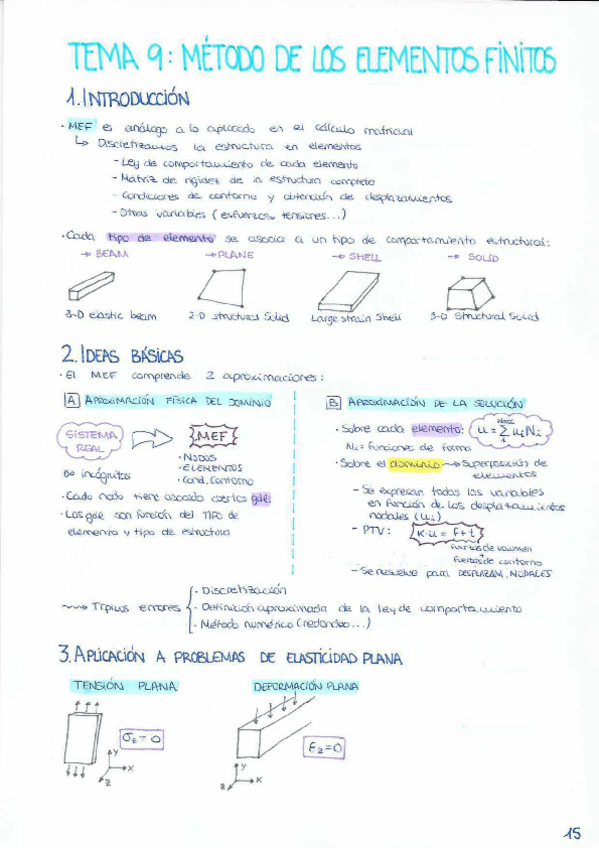 TEMA 9: MÉTODO DE LOS ELEMENTOS FINITOS
1. INTRODUCCIÓN
· MEF es análogo a lo aplicado en el cálculo matricial
↳ Discretizamos la estructura en elementos
- Ley de comportamiento de cada elemento
- Matriz de rigidez de la estructura completa
- Condiciones de contorno y obtención de desplazamientos
- Otras variables (esfuerzos, tensiones...)
· Cada tipo de elemento se asocia a un tipo de comportamiento estructural:
→ BEAM → PLANE → SHELL → SOLID
3-D elastic beam 2-D structural Solid Large strain Shell 3-D Structural Solid
2. IDEAS BÁSICAS
· El MEF comprende 2 aproximaciones:
A APROXIMACIÓN FÍSICA DEL DOMINIO
SISTEMA REAL ⇒ MEF
· NODOS
· ELEMENTOS
· Cond. Contorno
∞ incógnitas
· Cada nodo tiene asociado ciertos gdl
· Los gdl son función del TIPO de
elemento y tipo de estructura
B APROXIMACIÓN DE LA SOLUCIÓN
· Sobre cada elemento: u = Σ uᵢNᵢ
Nᵢ = funciones de forma
· Sobre el dominio → Superposición de
elementos
- Se expresan todas las variables
en función de los desplazamientos
nodales (uᵢ)
- PTV: K·u = f+t
fuerzas de volumen
fuerzas de contorno
- Se resuelve para DESPLAZAM. NODALES
Típicos errores
· Discretización
· Definición aproximada de la ley de comportamiento
· Método numérico (redondeo...)
3. APLICACIÓN A PROBLEMAS DE ELASTICIDAD PLANA
TENSIÓN PLANA DEFORMACIÓN PLANA
σz = 0 εz = 0
y x z
y x z
15